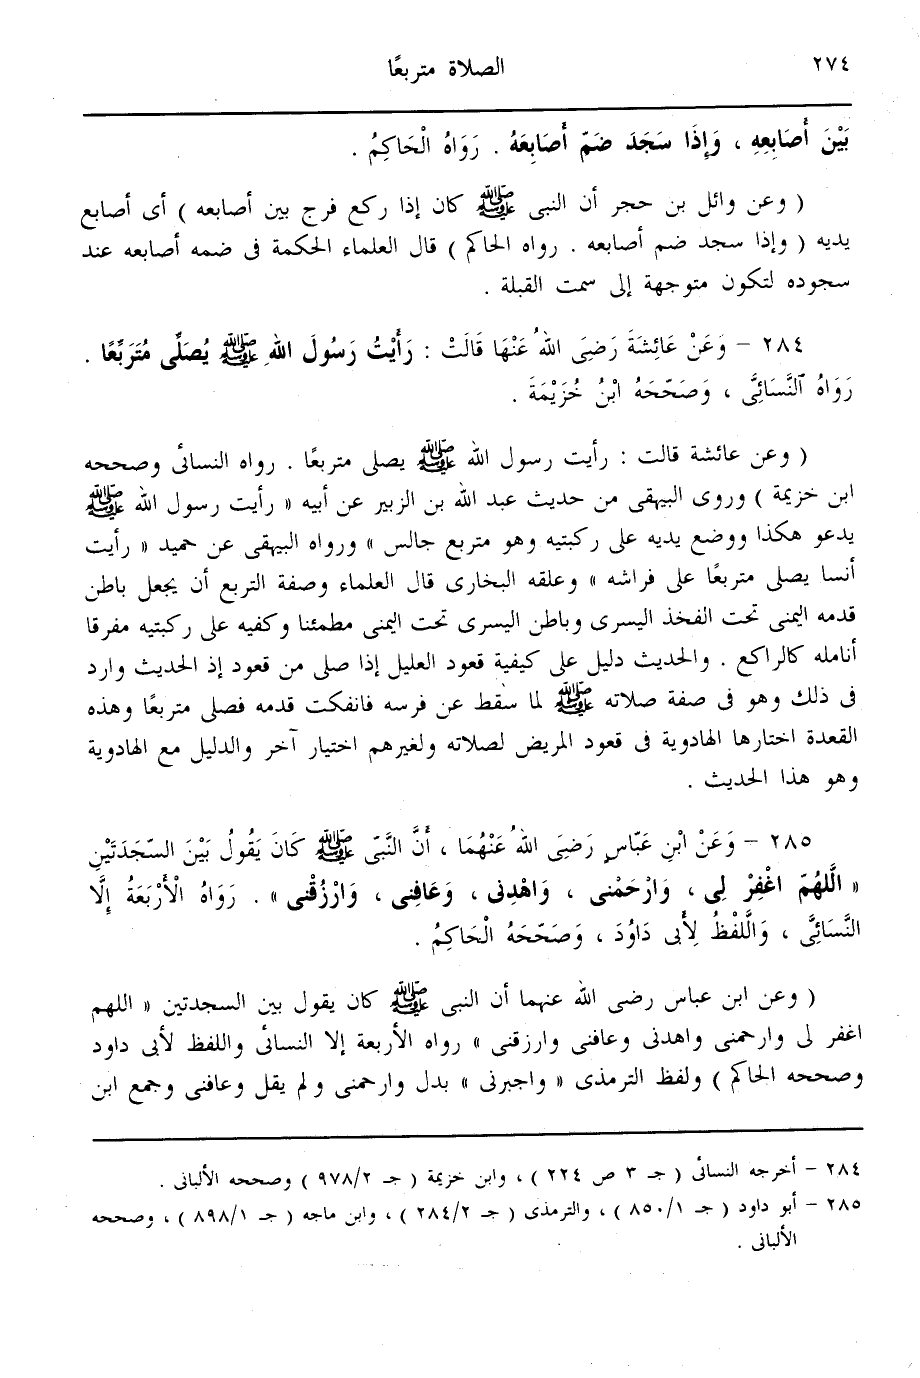 ٢٧٤
الصلاة متربعًا
بَيْنَ أَصَابِعِهِ ، وَإِذَا سَجَدَ ضَمّ أَصَابِعَهُ . رَوَاهُ الْحَاكِمُ .
( وعن وائل بن حجر أن النبى ﷺ كان إذا ركع فرج بين أصابعه ) أى أصابع
يديه ( وإذا سجد ضم أصابعه . رواه الحاكم ) قال العلماء الحكمة فى ضمه أصابعه عند
سجوده لتكون متوجهة إلى سمت القبلة .
٢٨٤ – وَعَنْ عَائِشَةَ رَضِىَ اللهُ عَنْهَا قَالَتْ : رَأَيْتُ رَسُولَ اللهِ ﷺ يُصَلِّى مُتَرَبِّعًا .
رَوَاهُ ٱلنَّسَائِىُّ ، وَصَحَّحَهُ ابْنُ خُزَيْمَةَ .
( وعن عائشة قالت : رأيت رسول الله ﷺ يصلى متربعًا . رواه النسائى وصححه
ابن خزيمة ) وروى البيهقى من حديث عبد الله بن الزبير عن أبيه « رأيت رسول الله ﷺ
يدعو هكذا ووضع يديه على ركبتيه وهو متربع جالس » ورواه البيهقى عن حميد « رأيت
أنسا يصلى متربعًا على فراشه » وعلقه البخارى قال العلماء وصفة التربع أن يجعل باطن
قدمه اليمنى تحت الفخذ اليسرى وباطن اليسرى تحت اليمنى مطمئنا وكفيه على ركبتيه مفرقا
أنامله كالراكع . والحديث دليل على كيفية قعود العليل إذا صلى من قعود إذ الحديث وارد
فى ذلك وهو فى صفة صلاته ﷺ لما سقط عن فرسه فانفكت قدمه فصلى متربعًا وهذه
القعدة اختارها الهادوية فى قعود المريض لصلاته ولغيرهم اختيار آخر والدليل مع الهادوية
وهو هذا الحديث .
٢٨٥ – وَعَنْ ابْنِ عَبّاسٍ رَضِىَ اللهُ عَنْهُمَا ، أَنَّ النَّبِّى ﷺ كَانَ يَقُولُ بَيْنَ السّجَدَتَيْنِ
« اللَّهُمّ اغْفِرْ لِى ، وَارْحَمْنى ، وَاهْدِنى ، وَعَافِنى ، وَارْزُقْنى » . رَوَاهُ الْأَرْبَعَةُ إِلَّا
النَّسَائِىَّ ، وَالَّلفْظُ لِأَبى دَاوُدَ ، وَصَحّحَهُ الْحَاكِمُ .
( وعن ابن عباس رضى الله عنهما أن النبى ﷺ كان يقول بين السجدتين « اللهم
اغفر لى وارحمنى واهدنى وعافنى وارزقنى » رواه الأربعة إلا النسائى واللفظ لأبى داود
وصححه الحاكم ) ولفظ الترمذى « واجبرنى » بدل وارحمنى ولم يقل وعافنى وجمع ابن
٢٨٤ – أخرجه النسائى ( جـ ٣ ص ٢٢٤ ) ، وابن خزيمة ( جـ ٩٧٨/٢ ) وصححه الألبانى .
٢٨٥ – أبو داود ( جـ ٨٥٠/١ ) ، والترمذى ( جـ ٢٨٤/٢ ) ، وابن ماجه ( جـ ٨٩٨/١ ) ، وصححه
الألبانى .